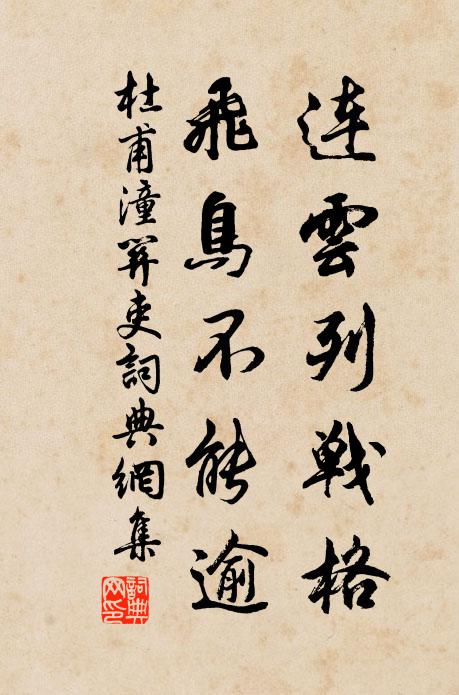 連雲列戰格
飛鳥不能逾
杜甫潼關吏詞典網集
詞典
网印